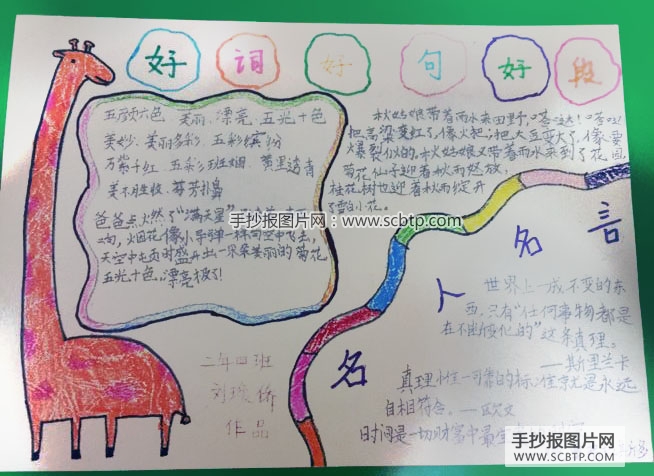 好词好句好段
五颜六色、美丽、漂亮、五光十色
美妙、美丽多彩、五彩缤纷
万紫千红、五彩斑斓、黄里透青
美不胜收、芬芳扑鼻
爸爸点火燃了“满天星”
空，烟花像小导弹一样向空中飞去，
天空中顿时盛开出一朵朵美丽的菊花
五光十色，漂亮极了！
秋姑娘带着雨水来田野，嗒哒！
把高粱变红了，像火把；把大豆变大了，像要
爆裂似的。秋姑娘又带着雨水来到了花园
菊花仙子迎着秋雨怒放，
桂花树也迎着秋雨绽开
了雪白小花。
手抄报图片网：www.scbtp.com
名人名言
世界上一成不变的东
西，只有“任何事物都是
在不断变化的”这条真理。
——斯里兰卡
真理惟一可靠的标准就是永远
自相符合。——欧文
时间是一切财富中最宝
二年四班
刘
作品
手抄报图片网
WWW.SCBTP.COM